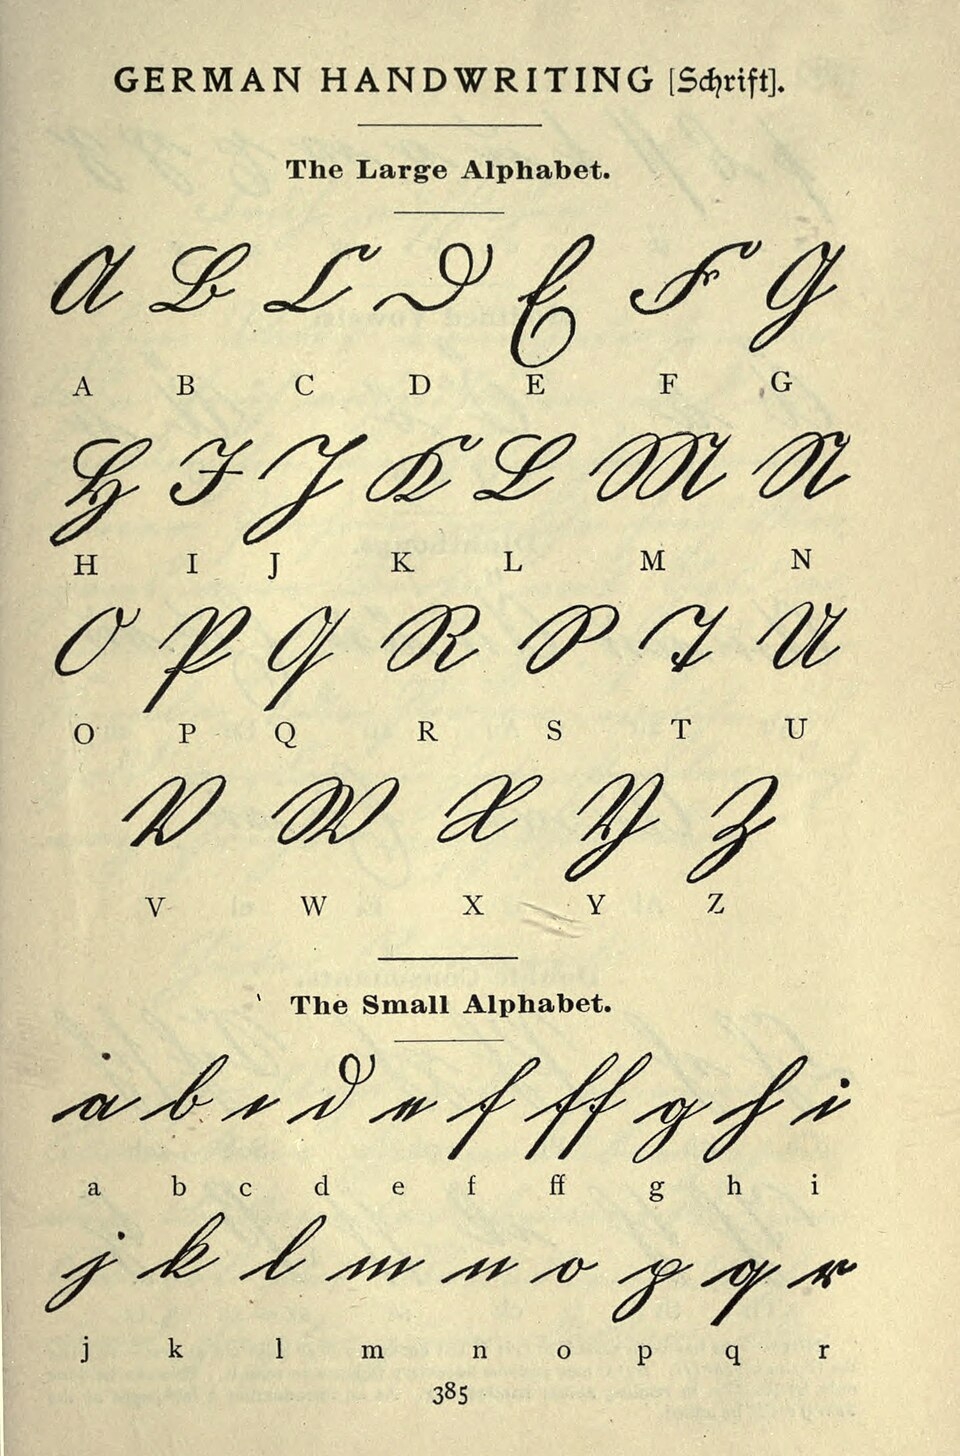 GERMAN HANDWRITING [Schrift].
The Large Alphabet.
A B C D E F G
A B C D E F G
H I J K L M N
H I J K L M N
O P Q R S T U
O P Q R S T U
V W X Y Z
V W X Y Z
The Small Alphabet.
a b c d e f ff g h i
a b c d e f ff g h i
j k l m n o p q r
j k l m n o p q r
385